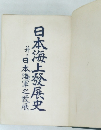 日本海上發展史
附・日本海軍之發展